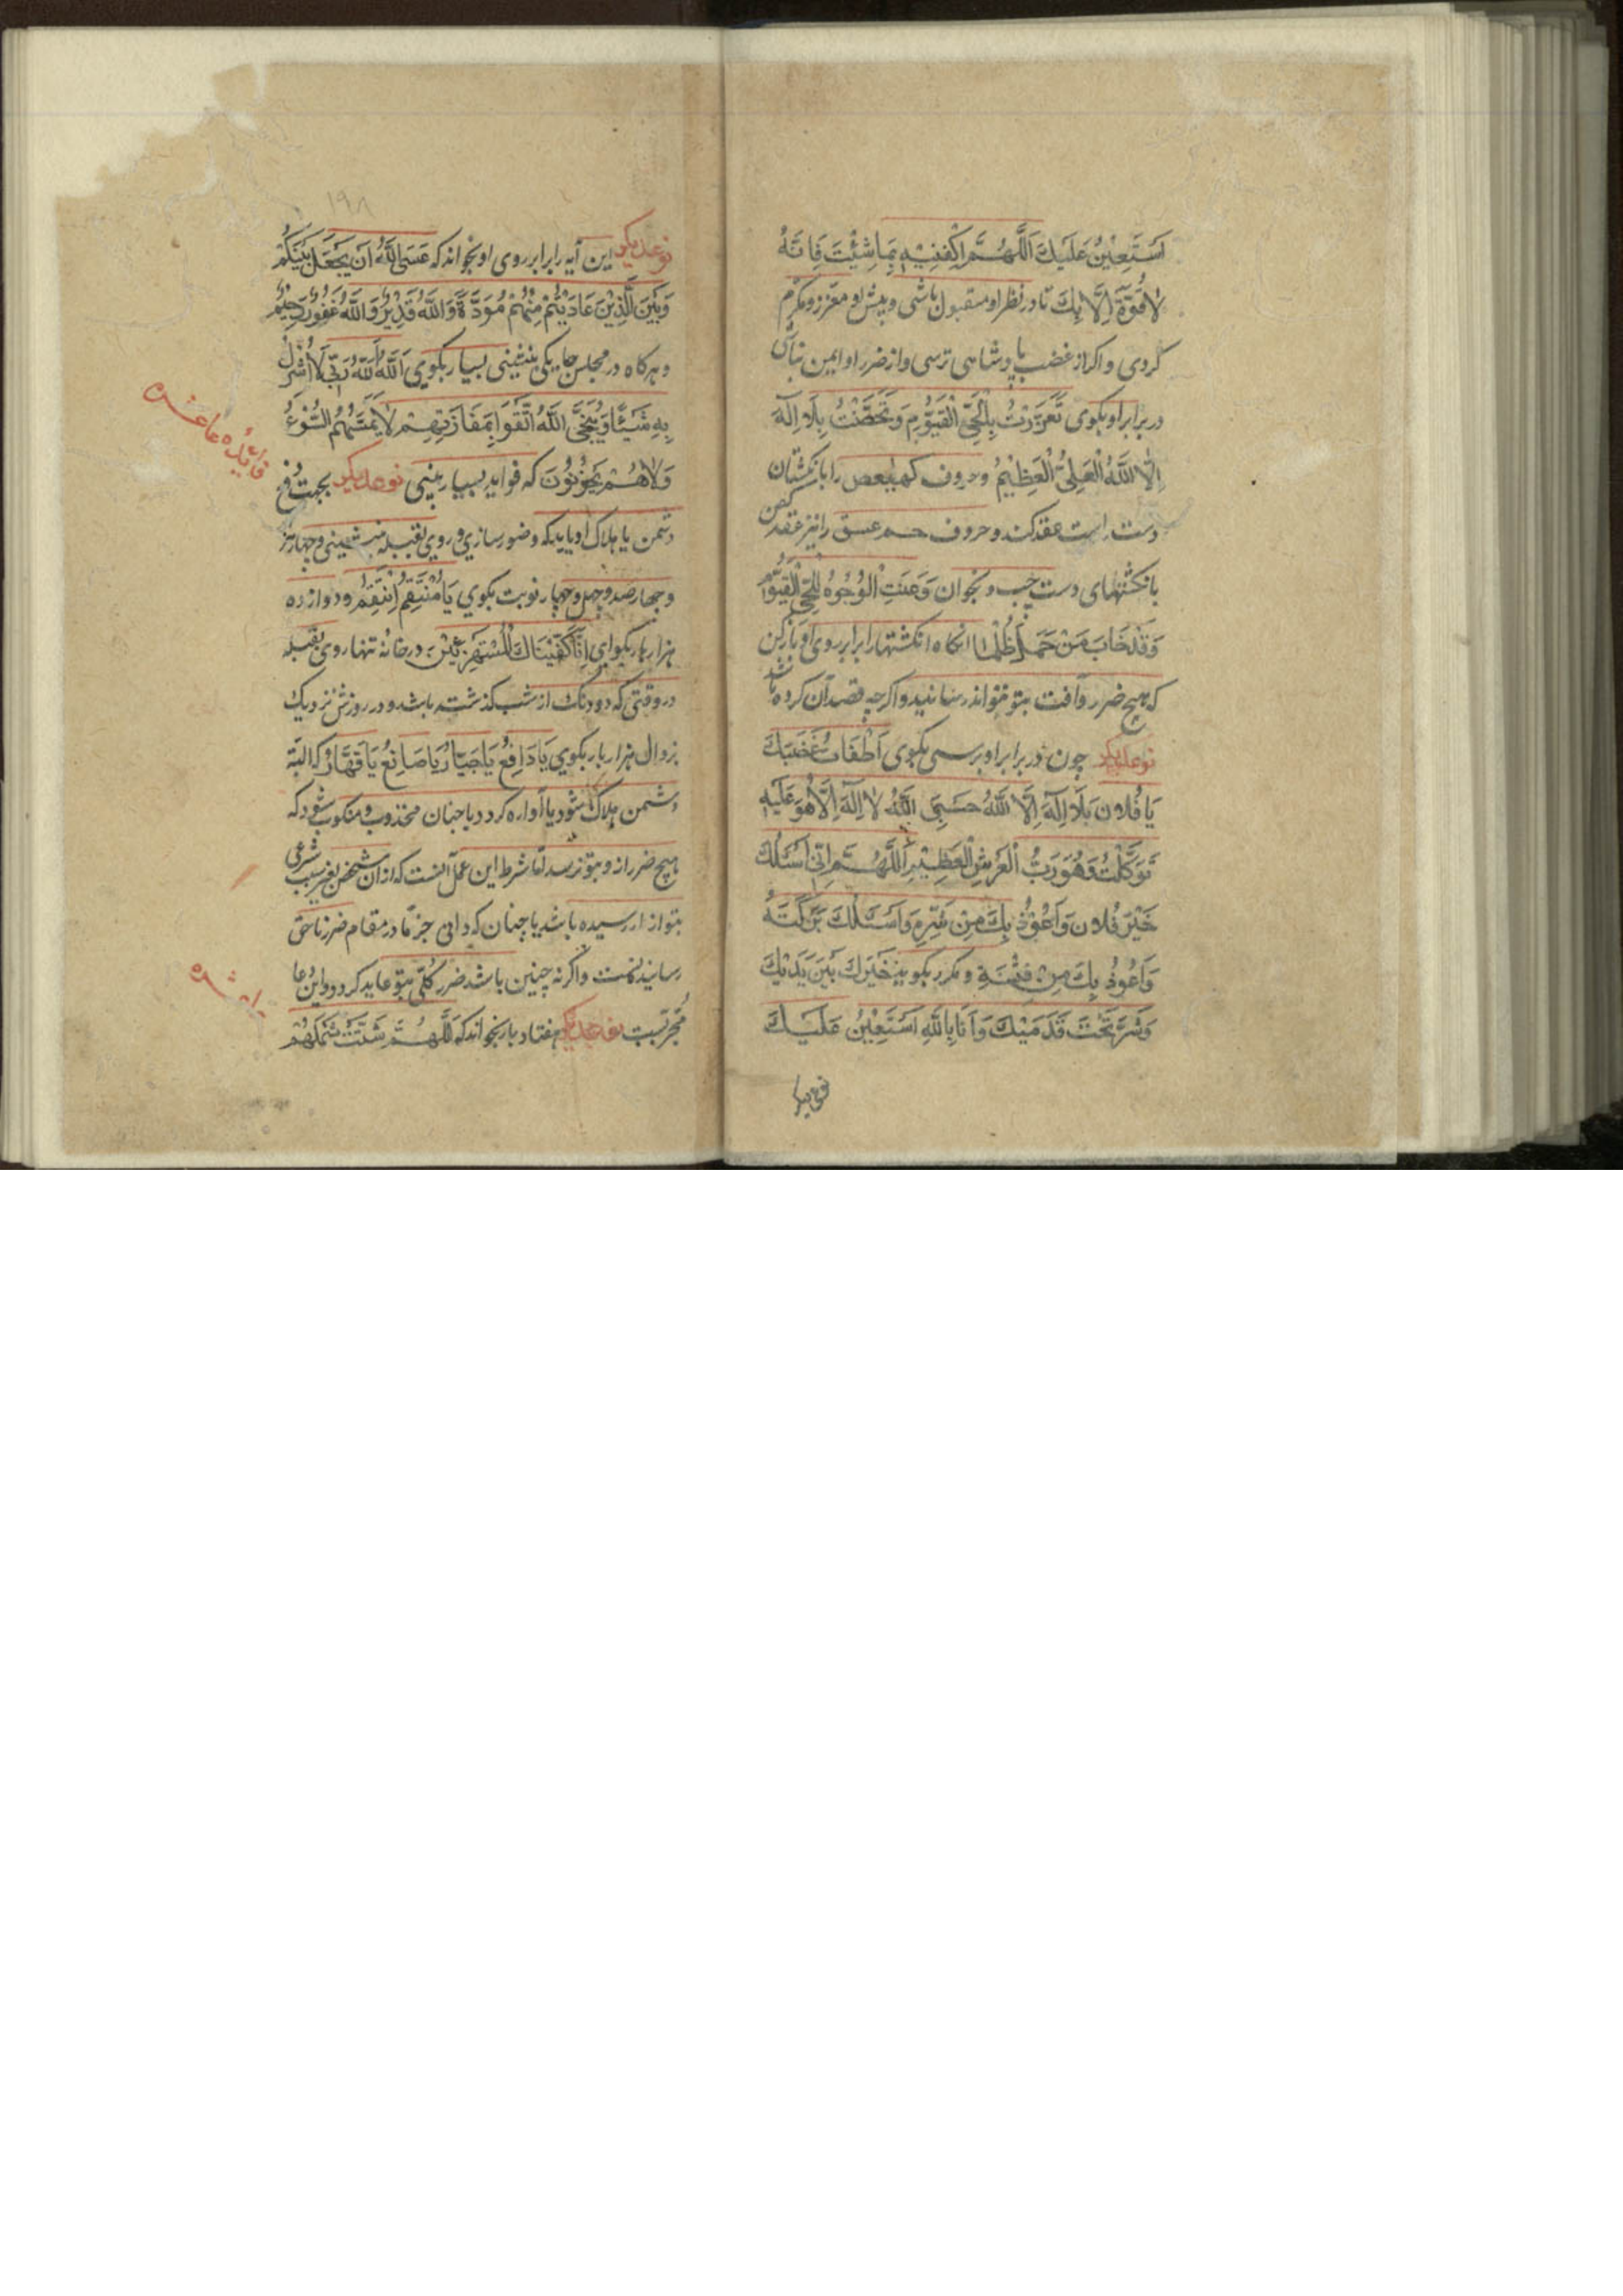 اَسْتَعِيْنُ عَلَيْكَ اَللَّهُمَّ اكْفِنِيْهِ بِمَا شِئْتَ فَاِنَّهُ
لَا قُوَّةَ اِلَّا بِكَ تا در نظر او مقبول باشی و پیش او معزز و مکرم
کردی و اکر از غضب پادشاهی ترسی و از ضرر او ایمن نباشی
در برابر او بکوی تَعَزَّزْتُ بِالْحَيِّ الْقَيُّوْمِ وَتَحَصَّنْتُ بِلَا اِلَهَ
اِلَّا اللَّهُ الْعَلِيُّ الْعَظِيْمُ و حروف كهيعص را بانکشتان
دست راست عقد کند و حروف حمعسق را نیز عقد کن
بانکشتهای دست چپ و بخوان وَعَنَتِ الْوُجُوْهُ لِلْحَيِّ الْقَيُّوْمِ
وَقَدْ خَابَ مَنْ حَمَلَ ظُلْمًا انکاه انکشتها را برابر روی او باز کن
که هیچ ضرر و آفت بتو نتواند رسانید و اکرچه قصد آن کرده باشد
نوعدیکر چون در برابر او برسی بکوی اَطْفَاتُ غَضَبَكَ
يَا فُلَان بَلَا اِلَهَ اِلَّا اللَّهُ حَسْبِيَ اللَّهُ لَا اِلَهَ اِلَّا هُوَ عَلَيْهِ
تَوَكَّلْتُ وَهُوَ رَبُّ الْعَرْشِ الْعَظِيْمِ اَللَّهُمَّ اِنِّي اَسْئَلُكَ
خَيْرَ فُلَان وَاَعُوْذُ بِكَ مِنْ شَرِّهِ وَاَسْئَلُكَ بَرَكَتَهُ
وَاَعُوْذُ بِكَ مِنْ فِتْنَةِ و مکرر بکوید خَيْرُكَ بَيْنَ يَدَيْكَ
وَشَرُّ تَحْتَ قَدَمَيْكَ وَاَنَا بِاللَّهِ اَسْتَعِيْنُ عَلَيْكَ
۱۹۸
نوعدیکر این آیه را برابر روی او بخواند که عَسَى اللَّهُ اَنْ يَجْعَلَ بَيْنَكُمْ
وَبَيْنَ الَّذِيْنَ عَادَيْتُمْ مِنْهُمْ مَوَدَّةً وَاللَّهُ قَدِيْرٌ وَاللَّهُ غَفُوْرٌ رَحِيْمٌ
و هرکاه در مجلس جایکی بنشینی بسیار بکوي اَللَّهُ اَللَّهُ رَبِّي لَا اُشْرِكُ
بِهِ شَيْئًا وَيُنَجِّى اللَّهُ اتَّقَوْا بِمَفَازَتِهِمْ لَا يَمَسُّهُمُ السُّوْءُ
وَلَا هُمْ يَحْزَنُوْنَ که فواید بسیار بینی نوعدیکر بجهت دفع
دشمن یا هلاک او باید که وضو سازي و روي بقبله بنشینی و چهار هزار
و چهارصد و چهل و چهار نوبت بکوي يَا مُنْتَقِمُ اِنْتَقِمْ و دوازده
هزار بار بکوای اِنَّا كَفَيْنَاكَ الْمُسْتَهْزِئِيْنَ در خانهٔ تنها روی بقبله
در وقتی که دو دنک از شب کذشته باشد و در روزش نزدیك
بزوال هزار بار بکوي يَا دَافِعُ يَا جَبَّارُ يَا صَانِعُ يَا قَهَّارُ که البته
دشمن هلاک شود یا آواره کردد یا چنان مخذوب و منکوب شود که
هیچ ضرر ازو بتو نرسد امّا شرط این عمل آنست که ازان شخص بغیر سبب شرعی
بتو ازار رسیده باشد یا چنان که دانی جزمًا در مقام ضرر ناحق
رسانیدنست و اکر نه چنین باشد ضرر کلّی بتو عاید کردد و این دعا
مُجرّبست نوعدیکر هفتاد بار بخواند که اَللَّهُمَّ شَتِّتْ شَمْلَهُمْ